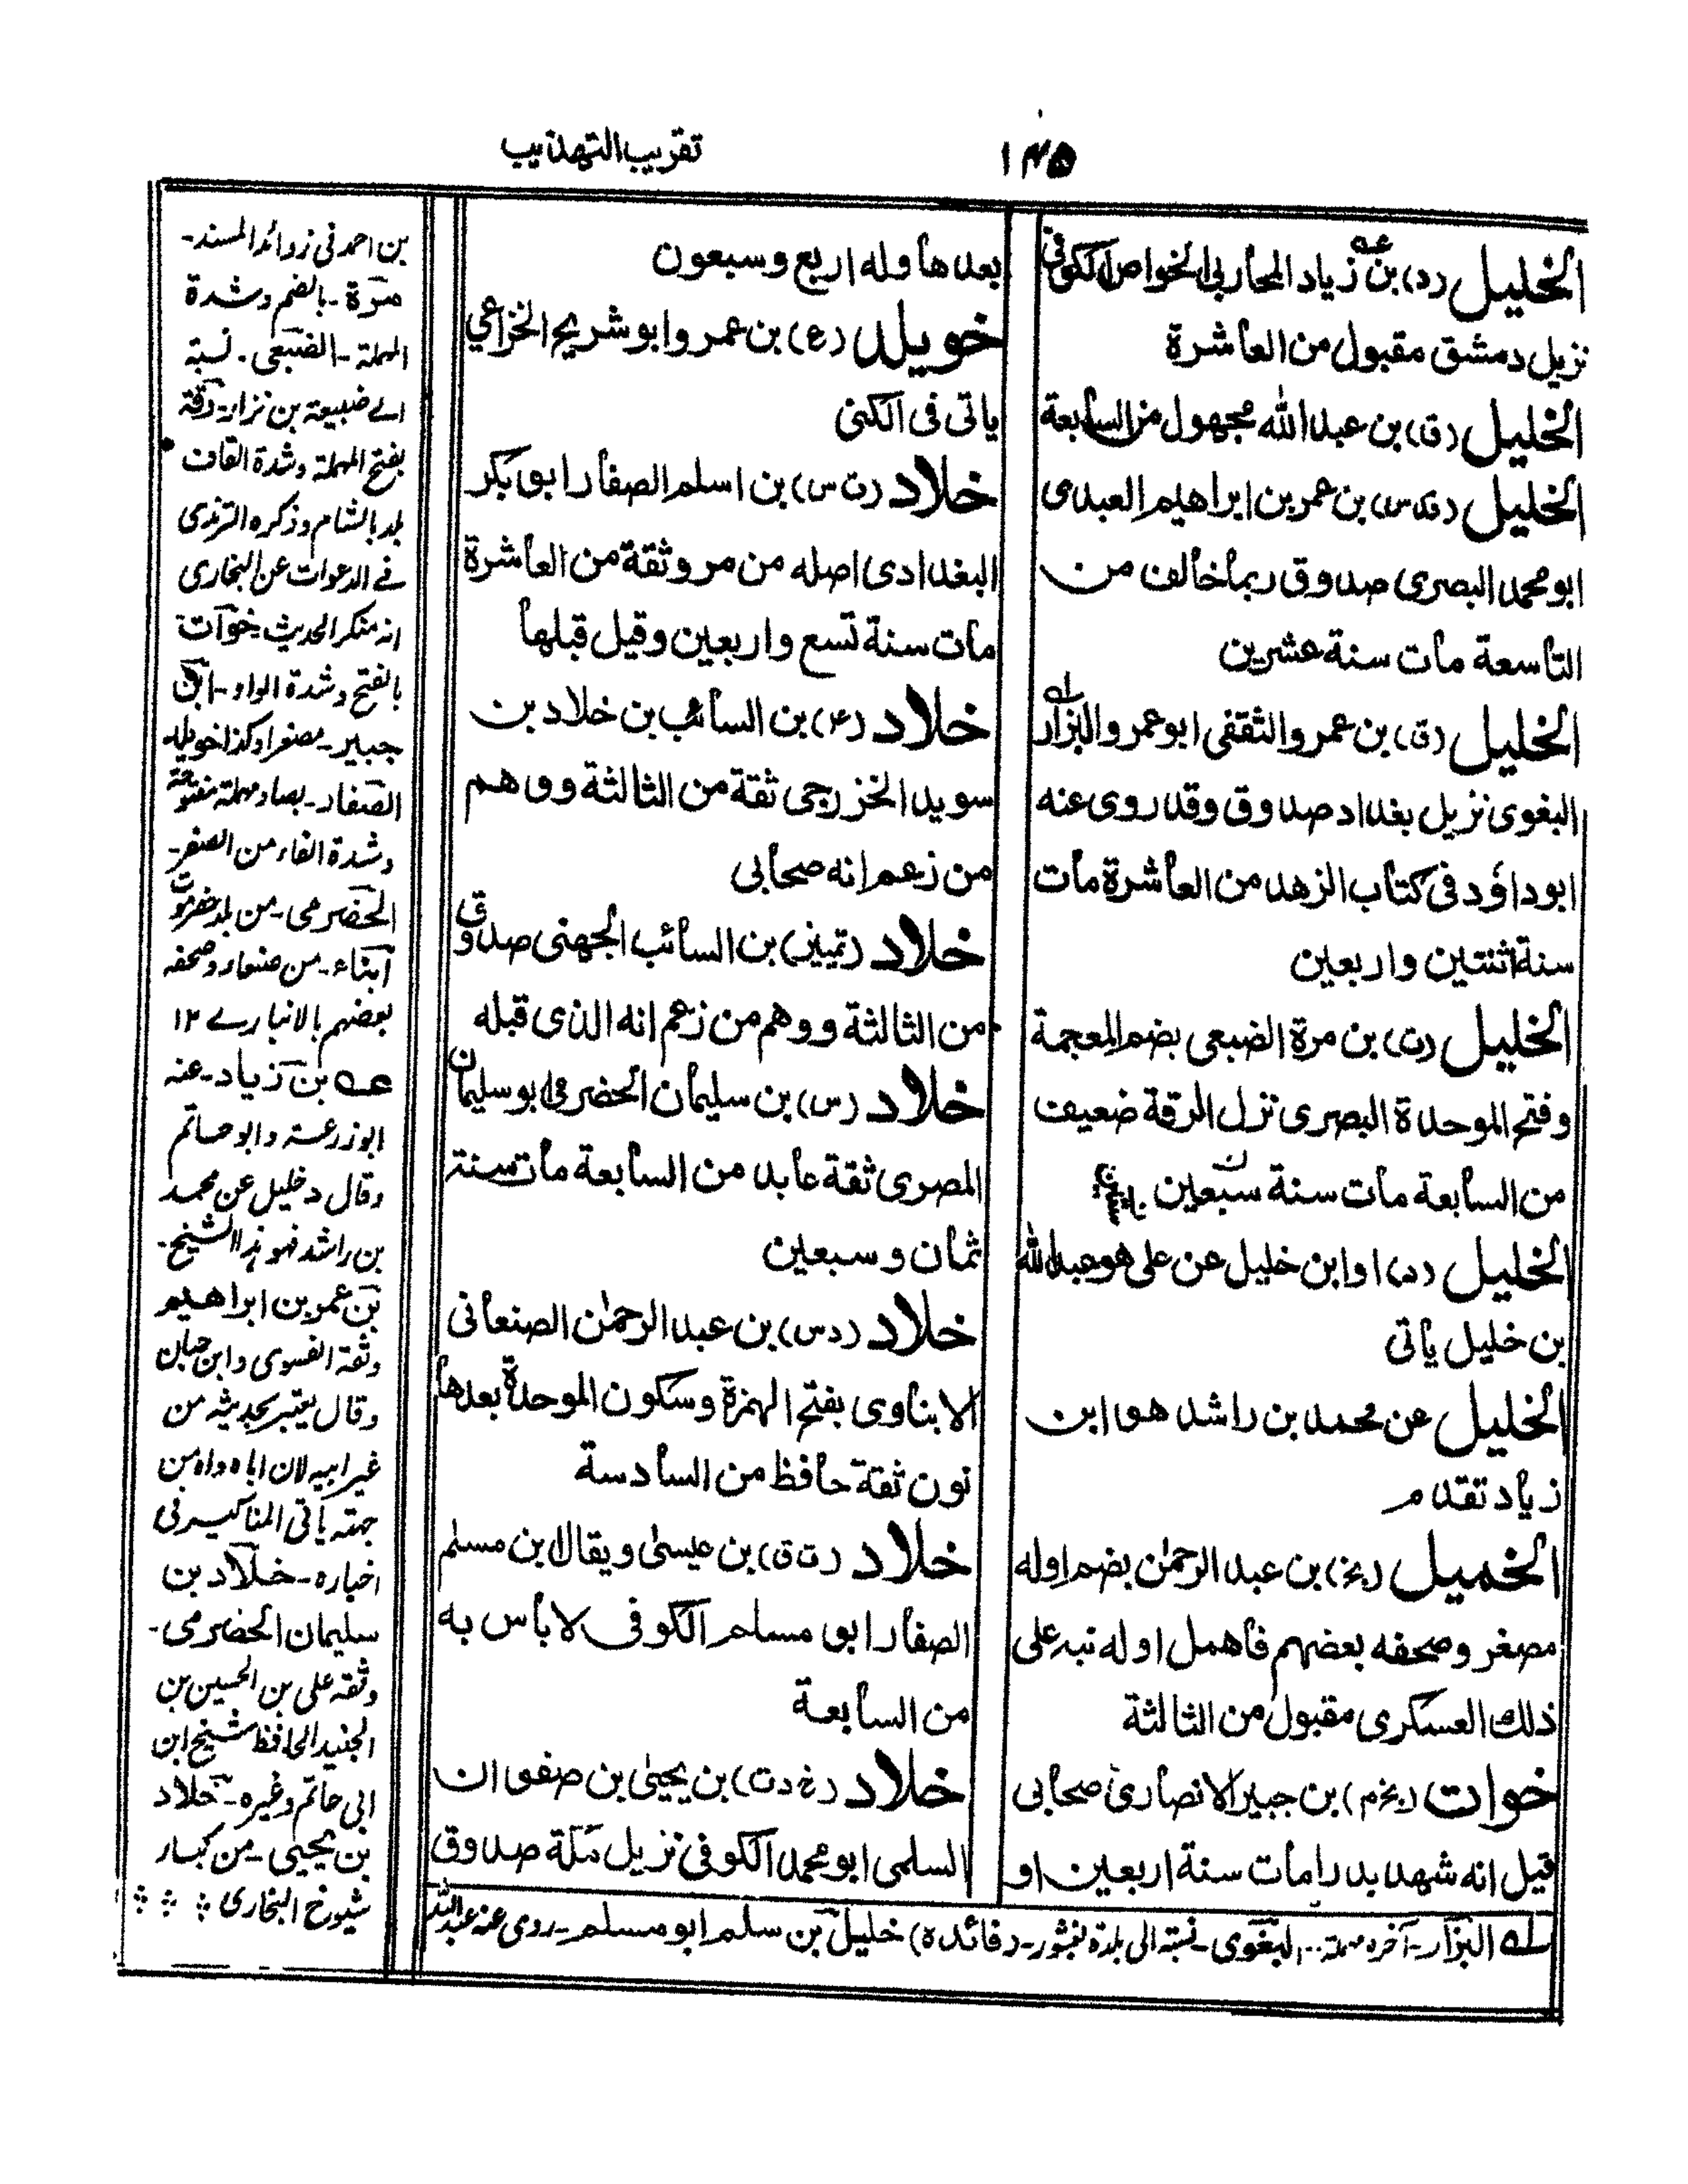 تقريب التهذيب
١٣٥
الخليل (د) بن زياد المحاربى الخواص الكوفى
نزيل دمشق مقبول من العاشرة
الخليل (ق) بن عبد الله مجهول من السابعة
الخليل (قد س) بن عمر بن ابراهيم العبدى
ابو محمد البصرى صدوق ربما خالف من
التاسعة مات سنة عشرين
الخليل (ق) بن عمرو الثقفى ابو عمرو البزار
البغوى نزيل بغداد صدوق وقد روى عنه
ابو داؤد فى كتاب الزهد من العاشرة مات
سنة اثنتين واربعين
الخليل (ت) بن مرة الضبعى بضم المعجمة
وفتح الموحدة البصرى نزل الرقة ضعيف
من السابعة مات سنة سبعين
الخليل (د) او ابن خليل عن على هو عبد الله
بن خليل ياتى
الخليل عن محمد بن راشد هو ابن
زياد تقدم
الخميل (بخ) بن عبد الرحمٰن بضم اوله
مصغر وصحفه بعضهم فاهمل اوله نبه على
ذلك العسكرى مقبول من الثالثة
خوات (بخ م) بن جبير الانصارى صحابى
قيل انه شهد بدرا مات سنة اربعين او
بعدها وله اربع وسبعون
خويلد (ع) بن عمرو ابو شريح الخزاعي
ياتى فى الكنى
خلاد (ت س) بن اسلم الصفار ابو بكر
البغدادى اصله من مرو ثقة من العاشرة
مات سنة تسع واربعين وقيل قبلها
خلاد (٤) بن السائب بن خلاد بن
سويد الخزرجى ثقة من الثالثة ووهم
من زعم انه صحابى
خلاد (تمييز) بن السائب الجهنى صدوق
من الثالثة ووهم من زعم انه الذى قبله
خلاد (س) بن سليمان الحضرمى ابو سليمان
المصرى ثقة عابد من السابعة مات سنة
ثمان وسبعين
خلاد (د س) بن عبد الرحمٰن الصنعانى
الابناوى بفتح الهمزة وسكون الموحدة بعدها
نون ثقة حافظ من السادسة
خلاد (ت ق) بن عيسىٰ ويقال ابن مسلم
الصفار ابو مسلم الكوفى لا بأس به
من السابعة
خلاد (خ د ت) بن يحيىٰ بن صفوان
السلمى ابو محمد الكوفى نزيل مكة صدوق
له البزار - آخره مهملة .. البغوى - نسبة الى بلدة بغشور - (فائدة) خليل بن سلم ابو مسلم - روى عنه عبد الله
بن احمد فى زوائد المسند -
مرة - بالضم وشدة
المهملة - الضبعى - نسبة
الے ضبيعة بن نزار - رقة
بفتح المهملة وشدة القاف
بلد بالشام وذكره الترمذى
فے الدعوات عن البخارى
انه منكر الحديث - خوات
بالفتح وشدة الواو - ابن
جبير - مصغرا وكذا خويلد
الصفار - بصاد مهملة مفتوحة
وشدة الفاء من الصفر -
الحضرمى - من بلد حضرموت
ابناء - من صنعاء وصحفه
بعضهم بالانبارے ١٢
عه بن زياد - عنه
ابو زرعة وابو حاتم
وقال د خليل عن محمد
بن راشد فهو هذا الشيخ -
بن عمر بن ابراهيم
وثقه الفسوى وابن حبان
وقال يعتبر بحديثه من
غير ابيه لان اباه واه من
جهته ياتى المناكير فى
اخباره - خلاد بن
سليمان الحضرمى -
وثقه على بن الحسين بن
الجنيد الحافظ شيخ ابن
ابى حاتم وغيره - خلاد
بن يحيى - من كبار
شيوخ البخارى